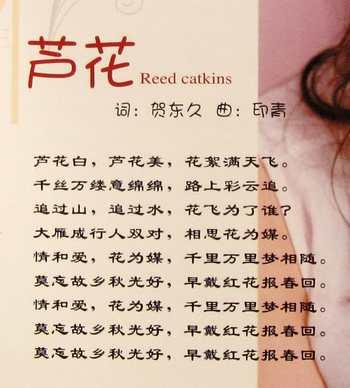 芦花 Reed catkins
词：贺东久 曲：印青
芦花白，芦花美，花絮满天飞。
千丝万缕意绵绵，路上彩云追。
追过山，追过水，花飞为了谁？
大雁成行人双对，相思花为媒。
情和爱，花为媒，千里万里梦相随。
莫忘故乡秋光好，早戴红花报春回。
情和爱，花为媒，千里万里梦相随。
莫忘故乡秋光好，早戴红花报春回。
莫忘故乡秋光好，早戴红花报春回。